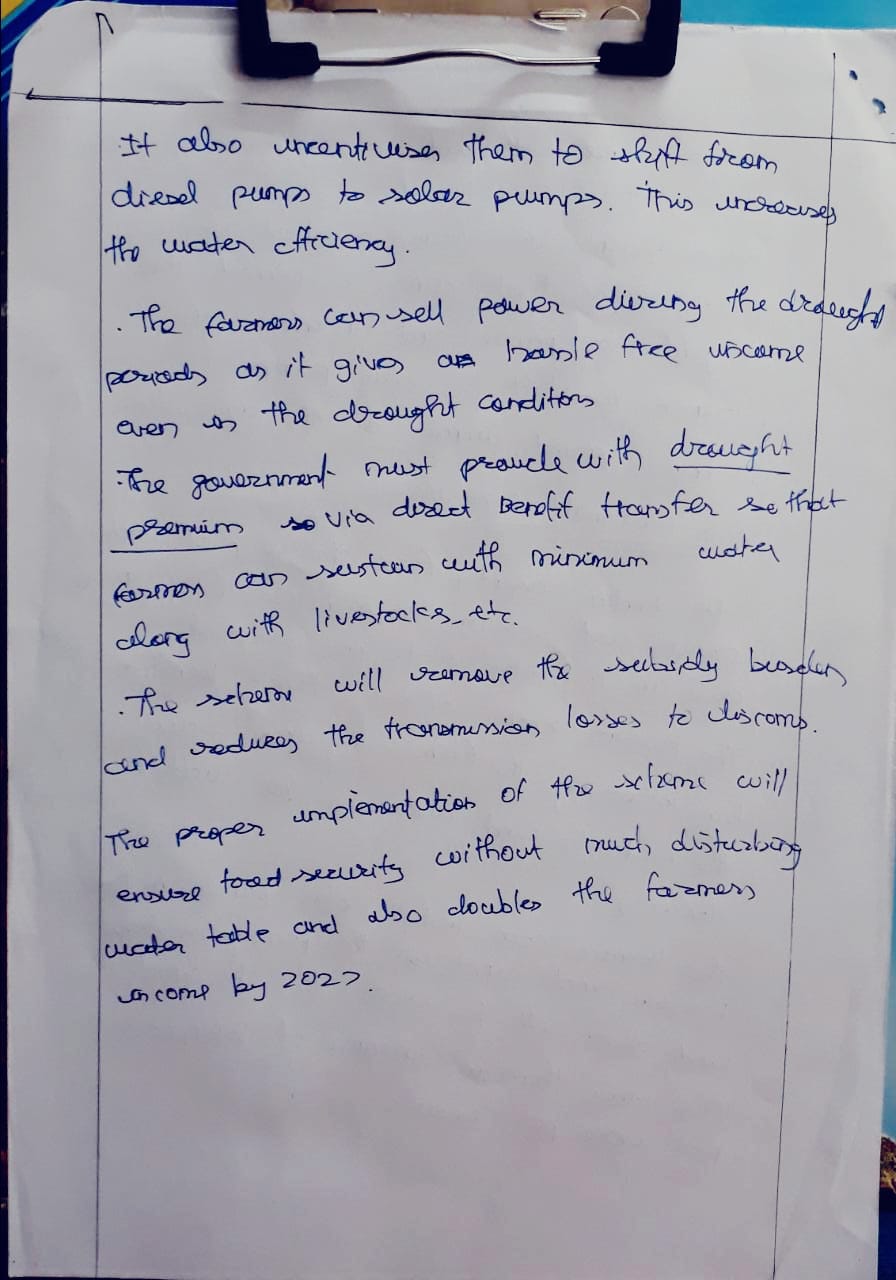 It also incentivises them to shift from
diesel pumps to solar pumps. This increases
the water efficiency.
. The farmers can sell power during the drought
periods as it gives a hassle free income
even in the drought condition
. The government must provide with drought
premium so via direct Benefit transfer so that
farmers can sustain with minimum water
along with livestocks, etc.
. The scheme will remove the subsidy burden
and reduces the transmission losses to discoms.
The proper implementation of the scheme will
ensure food security without much disturbing
water table and also doubles the farmers
income by 2022.